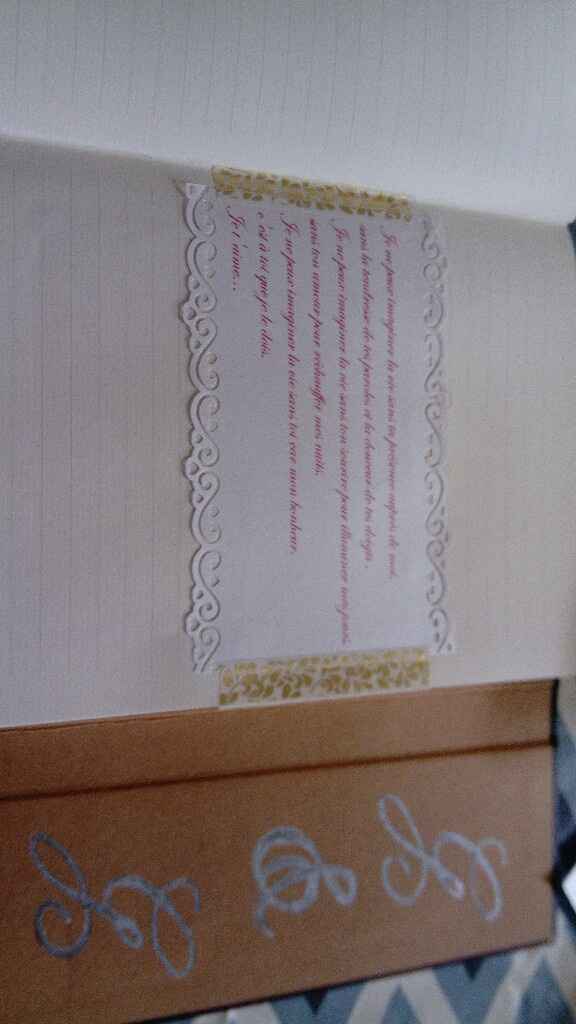 Je ne peux imaginer la vie sans ta présence auprès de moi,
sans la tendresse de tes paroles et la douceur de tes doigts.
Je ne peux imaginer la vie sans ton sourire pour illuminer mes jours,
sans ton amour pour réchauffer mes nuits.
Je ne peux imaginer la vie sans toi car mon bonheur,
c'est à toi que je le dois.
Je t'aime...